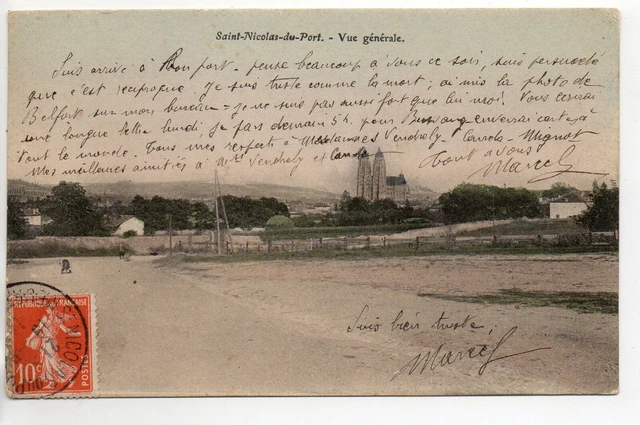 Saint-Nicolas-du-Port. - Vue générale.
Suis arrivé à bon port - pense beaucoup à vous ce soir, suis persuadé
que c'est réciproque. Je suis triste comme la mort; ai mis la photo de
Belfort sur mon bureau = je ne suis pas aussi fort que lui moi. Vous écrirai
une longue lettre lundi, je pars demain 5h. pour enverrai carte à
tout le monde. Tous mes respects à Mesdames Mignot
Mes meilleures amitiés à et
tout à vous
Marcel
Suis bien triste,
Marcel
REPUBLIQUE FRANÇAISE
10c
POSTES